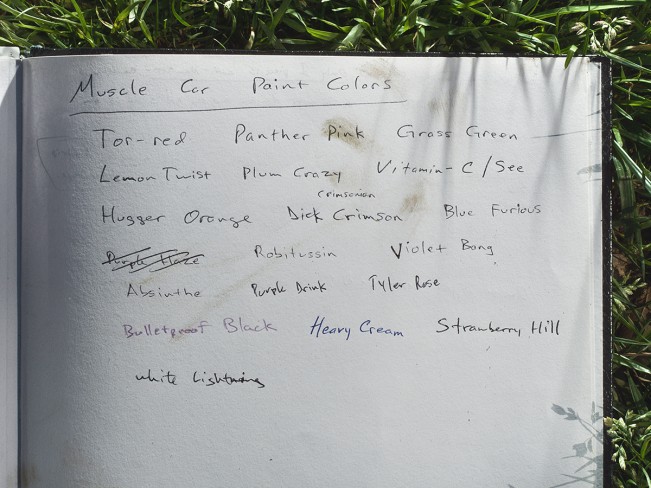 Muscle Car Paint Colors
Tor-red Panther Pink Grass Green
Lemon Twist Plum Crazy Vitamin-C/See
Crimsonian
Hugger Orange Dick Crimson Blue Furious
Purple Haze Robitussin Violet Bong
Absinthe Purple Drink Tyler Rose
Bulletproof Black Heavy Cream Strawberry Hill
white Lightning